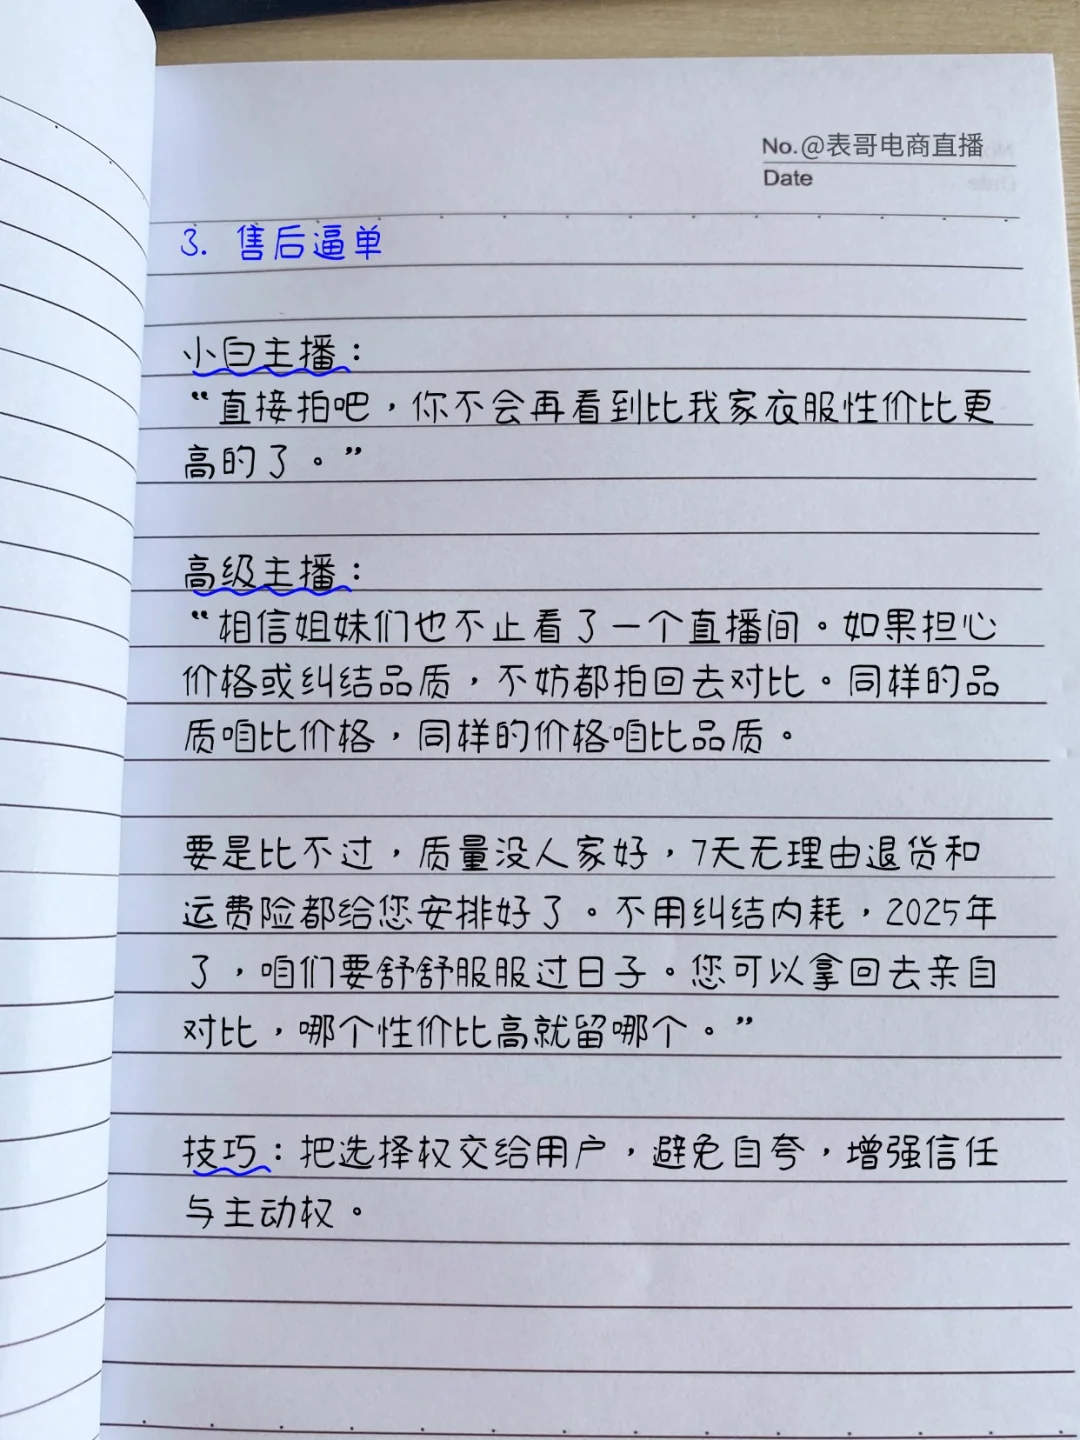 No.@表哥电商直播
Date
3. 售后逼单
小白主播：
“直接拍吧，你不会再看到比我家衣服性价比更
高的了。”
高级主播：
“相信姐妹们也不止看了一个直播间。如果担心
价格或纠结品质，不妨都拍回去对比。同样的品
质咱比价格，同样的价格咱比品质。
要是比不过，质量没人家好，7天无理由退货和
运费险都给您安排好了。不用纠结内耗，2025年
了，咱们要舒舒服服过日子。您可以拿回去亲自
对比，哪个性价比高就留哪个。”
技巧：把选择权交给用户，避免自夸，增强信任
与主动权。